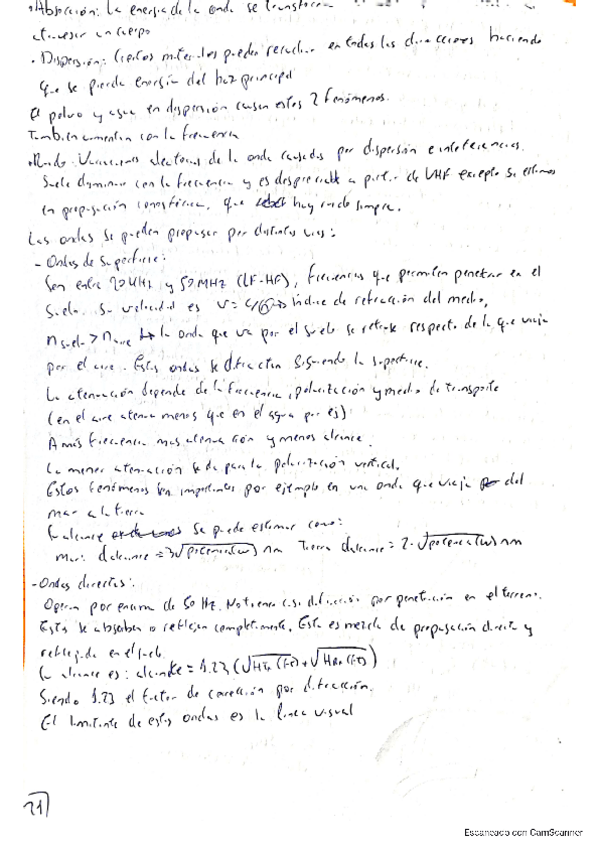 • Absorción: La energía de la onda se transforma
atravesar un cuerpo
• Dispersión: Ciertos materiales pueden rerradiar en todas las direcciones haciendo
que se pierda energía del haz principal
El polvo y agua en dispersión causan estos 2 fenómenos.
También aumentan con la frecuencia
• Ruido: Variaciones aleatorias de la onda causadas por dispersión e interferencias.
Suele disminuir con la frecuencia y es despreciable a partir de VHF excepto si estamos
en propagación ionosférica, que hay ruido siempre.
Las ondas se pueden propagar por distintas vías:
- Ondas de superficie:
Son entre 20 kHz y 50 MHz (LF-HF), frecuencias que permiten penetrar en el
suelo. Su velocidad es v = c/n → índice de refracción del medio,
n suelo > n aire → la onda que va por el suelo se retrasa respecto de la que viaja
por el aire. Estas ondas se difractan siguiendo la superficie.
La atenuación depende de la frecuencia, polarización y medio de transporte
(en el aire atenua menos que en el agua por ej)
A más frecuencia mas atenuación y menos alcance.
La menor atenuación se da para la polarización vertical.
Estos fenómenos son importantes por ejemplo en una onda que viaja del
mar a la tierra
El alcance se puede estimar como:
mar: dalcance = 3√potencia(w) nm Tierra dalcance = 2·√potencia(w) nm
- Ondas directas:
Operan por encima de 50 Hz. No tienen casi difracción por penetración en el terreno.
Estas se absorben o reflejan completamente. Esta es mezcla de propagación directa y
reflejada en el suelo.
Su alcance es: alcance = 1.23 (√HTx (Ft) + √HRx (Ft))
Siendo 1.23 el factor de corrección por difracción.
El limitante de estas ondas es la linea visual
21
Escaneado con CamScanner